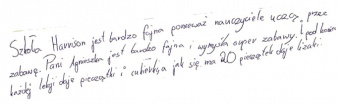 Szkoła Harrison jest bardzo fajna ponieważ nauczyciele uczą przez
zabawę. Pani Agnieszka jest bardzo fajna i wymyśla super zabawy. I pod koniec
każdej lekcji daje pieczątki i cukierka jak się ma 20 pieczątek daje lizaki.